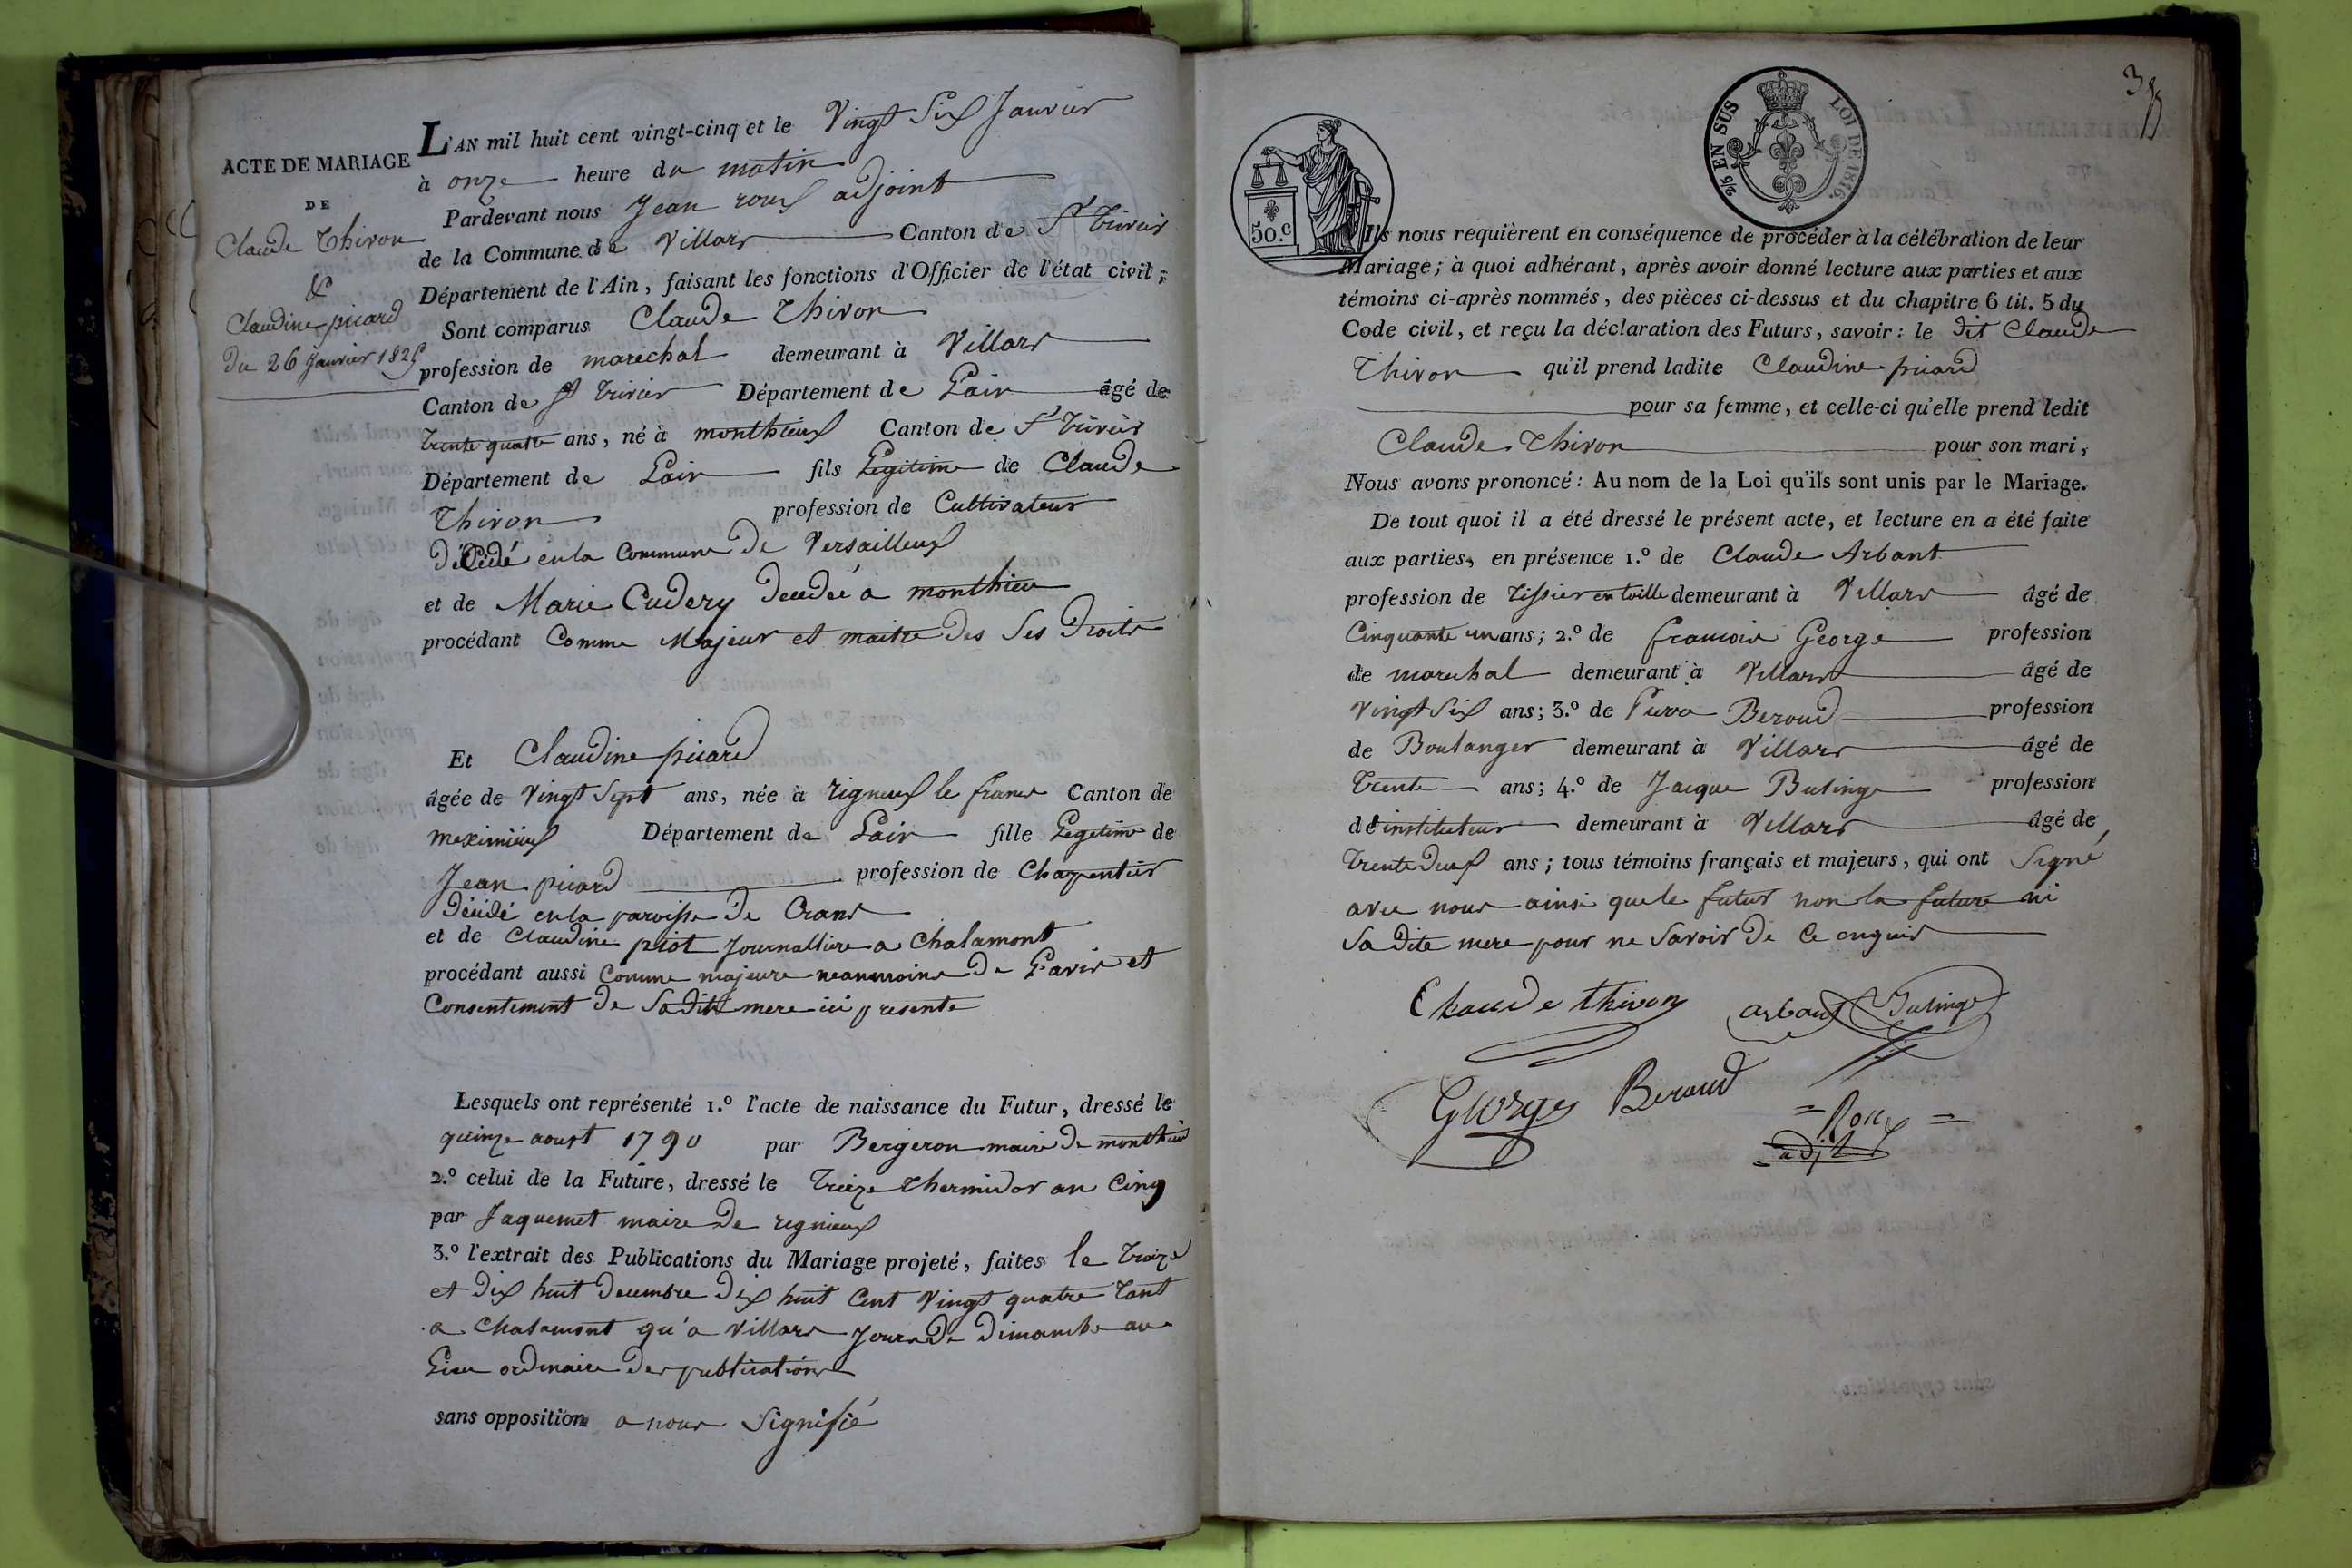 ACTE DE MARIAGE
DE
Claude Thivon
&
Claudine picard
du 26 Janvier 1825
L'AN mil huit cent vingt-cinq et le Vingt Six Janvier
à onze heure du matin
Pardevant nous Jean roux adjoint
de la Commune de Villars Canton de St Trivier
Département de l'Ain, faisant les fonctions d'Officier de l'état civil;
Sont comparus Claude Thivon
profession de marechal demeurant à Villars
Canton de St Trivier Département de Lain âgé de
trente quatre ans, né à monthieux Canton de St Trivier
Département de Lain fils Legitime de Claude
Thivon profession de Cultivateur
décédé en la Commune de Versailleux
et de Marie Cudery decedée a monthieu
procédant Comme Majeur et maitre des Ses Droits
Et Claudine picard
âgée de Vingt Sept ans, née à rigneux le franc Canton de
meximieux Département de Lain fille Legitime de
Jean picard profession de Charpentier
décédé en la paroisse de Crans
et de Claudine piot Journalliere a Chalamont
procédant aussi Comme majeure neanmoins de Lavis et
Consentement de Sa dite mere ici presente
Lesquels ont représenté 1.º l'acte de naissance du Futur, dressé le
quinze aoust 1790 par Bergeron maire de monthieu
2.º celui de la Future, dressé le Treize thermidor an Cinq
par Jaquemet maire de rignieux
3.º l'extrait des Publications du Mariage projeté, faites le Treize
et dix huit decembre dix huit Cent Vingt quatre tant
a Chalamont qu'a Villars Jours de dimanche au
Lieu ordinaire des publications
sans opposition a nous Signifié
3
50.c
2/5 EN SUS
LOI DE 1816.
Ils nous requièrent en conséquence de procéder à la célébration de leur
Mariage; à quoi adhérant, après avoir donné lecture aux parties et aux
témoins ci-après nommés, des pièces ci-dessus et du chapitre 6 tit. 5 du
Code civil, et reçu la déclaration des Futurs, savoir: le dit Claude
Thivon qu'il prend ladite Claudine picard
pour sa femme, et celle-ci qu'elle prend ledit
Claude Thivon pour son mari,
Nous avons prononcé: Au nom de la Loi qu'ils sont unis par le Mariage.
De tout quoi il a été dressé le présent acte, et lecture en a été faite
aux parties, en présence 1.º de Claude Arbant
profession de Tissier en toille demeurant à Villars âgé de
Cinquante un ans; 2.º de francois George profession
de marechal demeurant à Villars âgé de
vingt Six ans; 3.º de Pierre Beroud profession
de Boulanger demeurant à Villars âgé de
trente ans; 4.º de Jacque Butinge profession
de instituteur demeurant à Villars âgé de
trente deux ans; tous témoins français et majeurs, qui ont Signé
avec nous ainsi que le futur non la future ni
Sa dite mere pour ne Savoir de Ce enquis
Claude thivon arbant Butinge
Georges Beroud
= Roux =
adjt